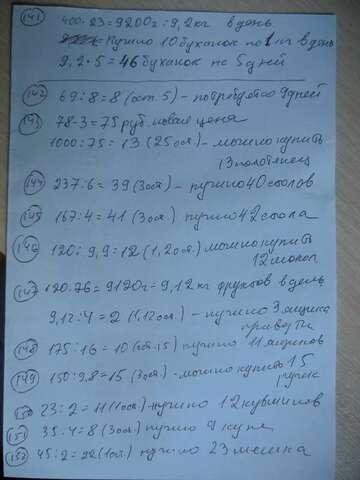 141 400·23=9200г=9,2кг в день
нужно 10 буханок по 1 кг в день
9,2·5=46 буханок на 5 дней
142 69:8=8 (ост. 5) - потребуется 9 дней
143 78-3=75 руб. новая цена
1000:75=13 (25 ост) - можно купить
13 полотенец
144 237:6=39 (3 ост) - нужно 40 столов
145 167:4=41 (3 ост.) нужно 42 стола
146 120:9,9=12 (1,2 ост.) можно купить
12
147 120·76=9120г=9,12 кг фруктов в день
9,12:4=2 (1,12 ост.) - нужно 3 ящика
привезти
148 175:16=10 (ост. 15) нужно 11 ящиков
149 150:9,8=15 (3 ост) - можно купить 15
ручек
150 23:2=11 (1 ост) нужно 12 кувшинов
151 35:4=8 (3 ост) нужно 9 купе
152 45:2=22 (1 ост.) нужно 23 мешка